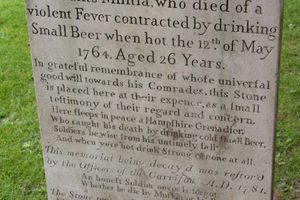 Militia, who died of a
violent Fever contracted by drinking
Small Beer when hot the 12th of May
1764. Aged 26 Years.
In grateful remembrance of whose univerſal
good will towards his Comrades, this Stone
is placed here at their expence, as a ſmall
teſtimony of their regard and concern.
Here ſleeps in peace a Hampſhire Grenadier,
Who caught his death by drinking cold ſmall Beer,
Soldiers be wiſe from his untimely fall
And when yere hot drink Strong or none at all.
This memorial being decay'd was reſtor'd
by the Officers of the Garriſon A.D. 1781.
An honeſt Soldier never is forgot
Whether he die by Muſket or by
The Stone